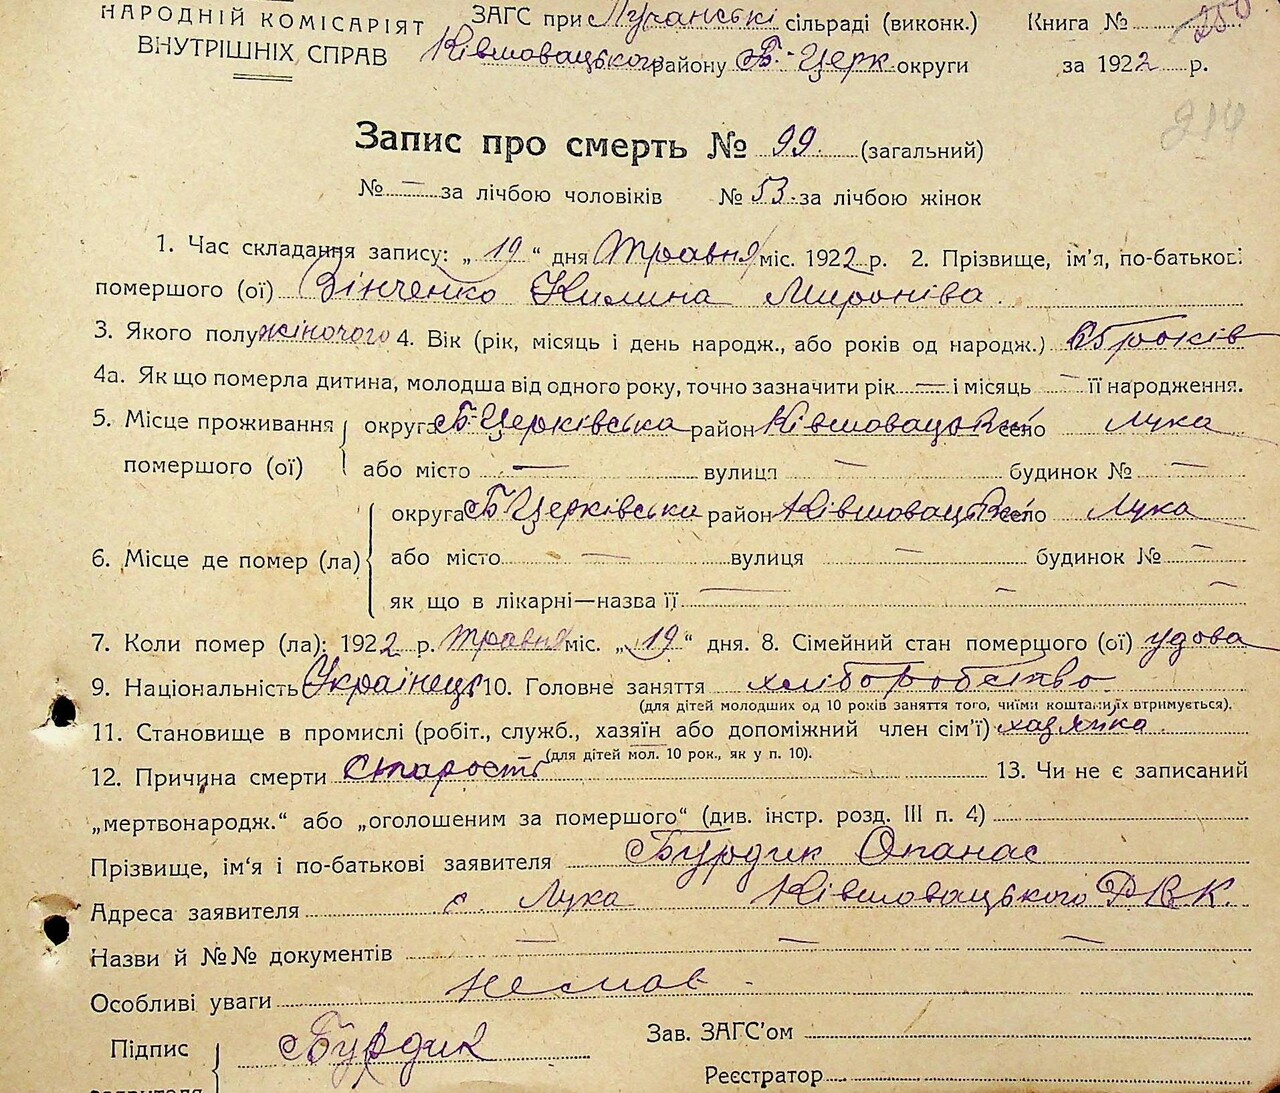 НАРОДНІЙ КОМІСАРІЯТ
ВНУТРІШНІХ СПРАВ
ЗАГС при Лучанські сільраді (виконк.)
Ківшовацького району Б.-Церк. округи
Книга № 250
за 1922 р.
214
Запис про смерть № 99. (загальний)
№ — за лічбою чоловіків № 53. за лічбою жінок
1. Час складання запису: „19“ дня Травня міс. 1922 р. 2. Прізвище, ім'я, по-батькові
помершого (ої) Зінченко Килина Миронівa.
3. Якого полу жіночого 4. Вік (рік, місяць і день народж., або років од народж.) років
4а. Як що померла дитина, молодша від одного року, точно зазначити рік — і місяць — її народження.
5. Місце проживання помершого (ої)
округа Б-Церківська район Ківшовацький село Лука
або місто — вулиця — будинок № —
6. Місце де помер (ла)
округа Б-Церківська район Ківшовацький село Лука
або місто — вулиця — будинок № —
як що в лікарні—назва її — —
7. Коли помер (ла): 1922 р. травня міс. „19“ дня. 8. Сімейний стан помершого (ої) удова
9. Національність Українець 10. Головне заняття хліборобство
(для дітей молодших од 10 років заняття того, чиїми коштами їх втримується).
11. Становище в промислі (робіт., служб., хазяїн або допоміжний член сім'ї) хазяйка
(для дітей мол. 10 рок., як у п. 10).
12. Причина смерти Старость 13. Чи не є записаний
„мертвонародж.“ або „оголошеним за помершого“ (див. інстр. розд. III п. 4)
Прізвище, ім'я і по-батькові заявителя Бурдик Опанас
Адреса заявителя с. Лука Ківшовацького РВК.
Назви й №№ документів — — —
Особливі уваги немає.
Підпис заявителя Бурдик
Зав. ЗАГС'ом
Реєстратор